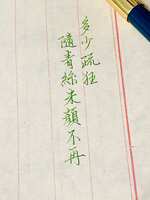 多少疏狂
隨青絲朱顏不再